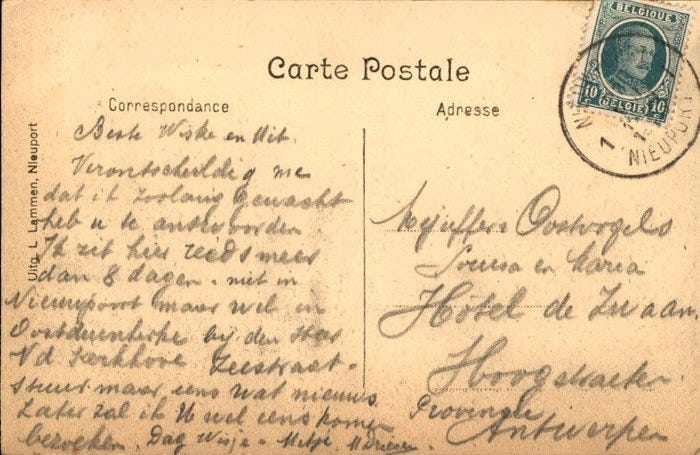 BELGIQUE
10 BELGIË 10
NIEUPORT
1
Carte Postale
Correspondance
Adresse
Uitg. L. Lammen, Nieuport
Beste Wiske en Mit.
Verontschuldig me
dat ik zoolang gewacht
heb u te antwoorden
Ik zit hier reeds meer
dan 8 dagen. niet in
Nieuwpoort maar wel in
Oostduinkerke bij den
Zeestraat.
Stuur maar eens wat nieuws
Later zal ik U wel eens komen
bezoeken. Dag Wisje.
Mejuffers Oostvogels
Louisa en Maria
Hôtel de Zwaan.
Hoogstraeten
Provincie
Antwerpen